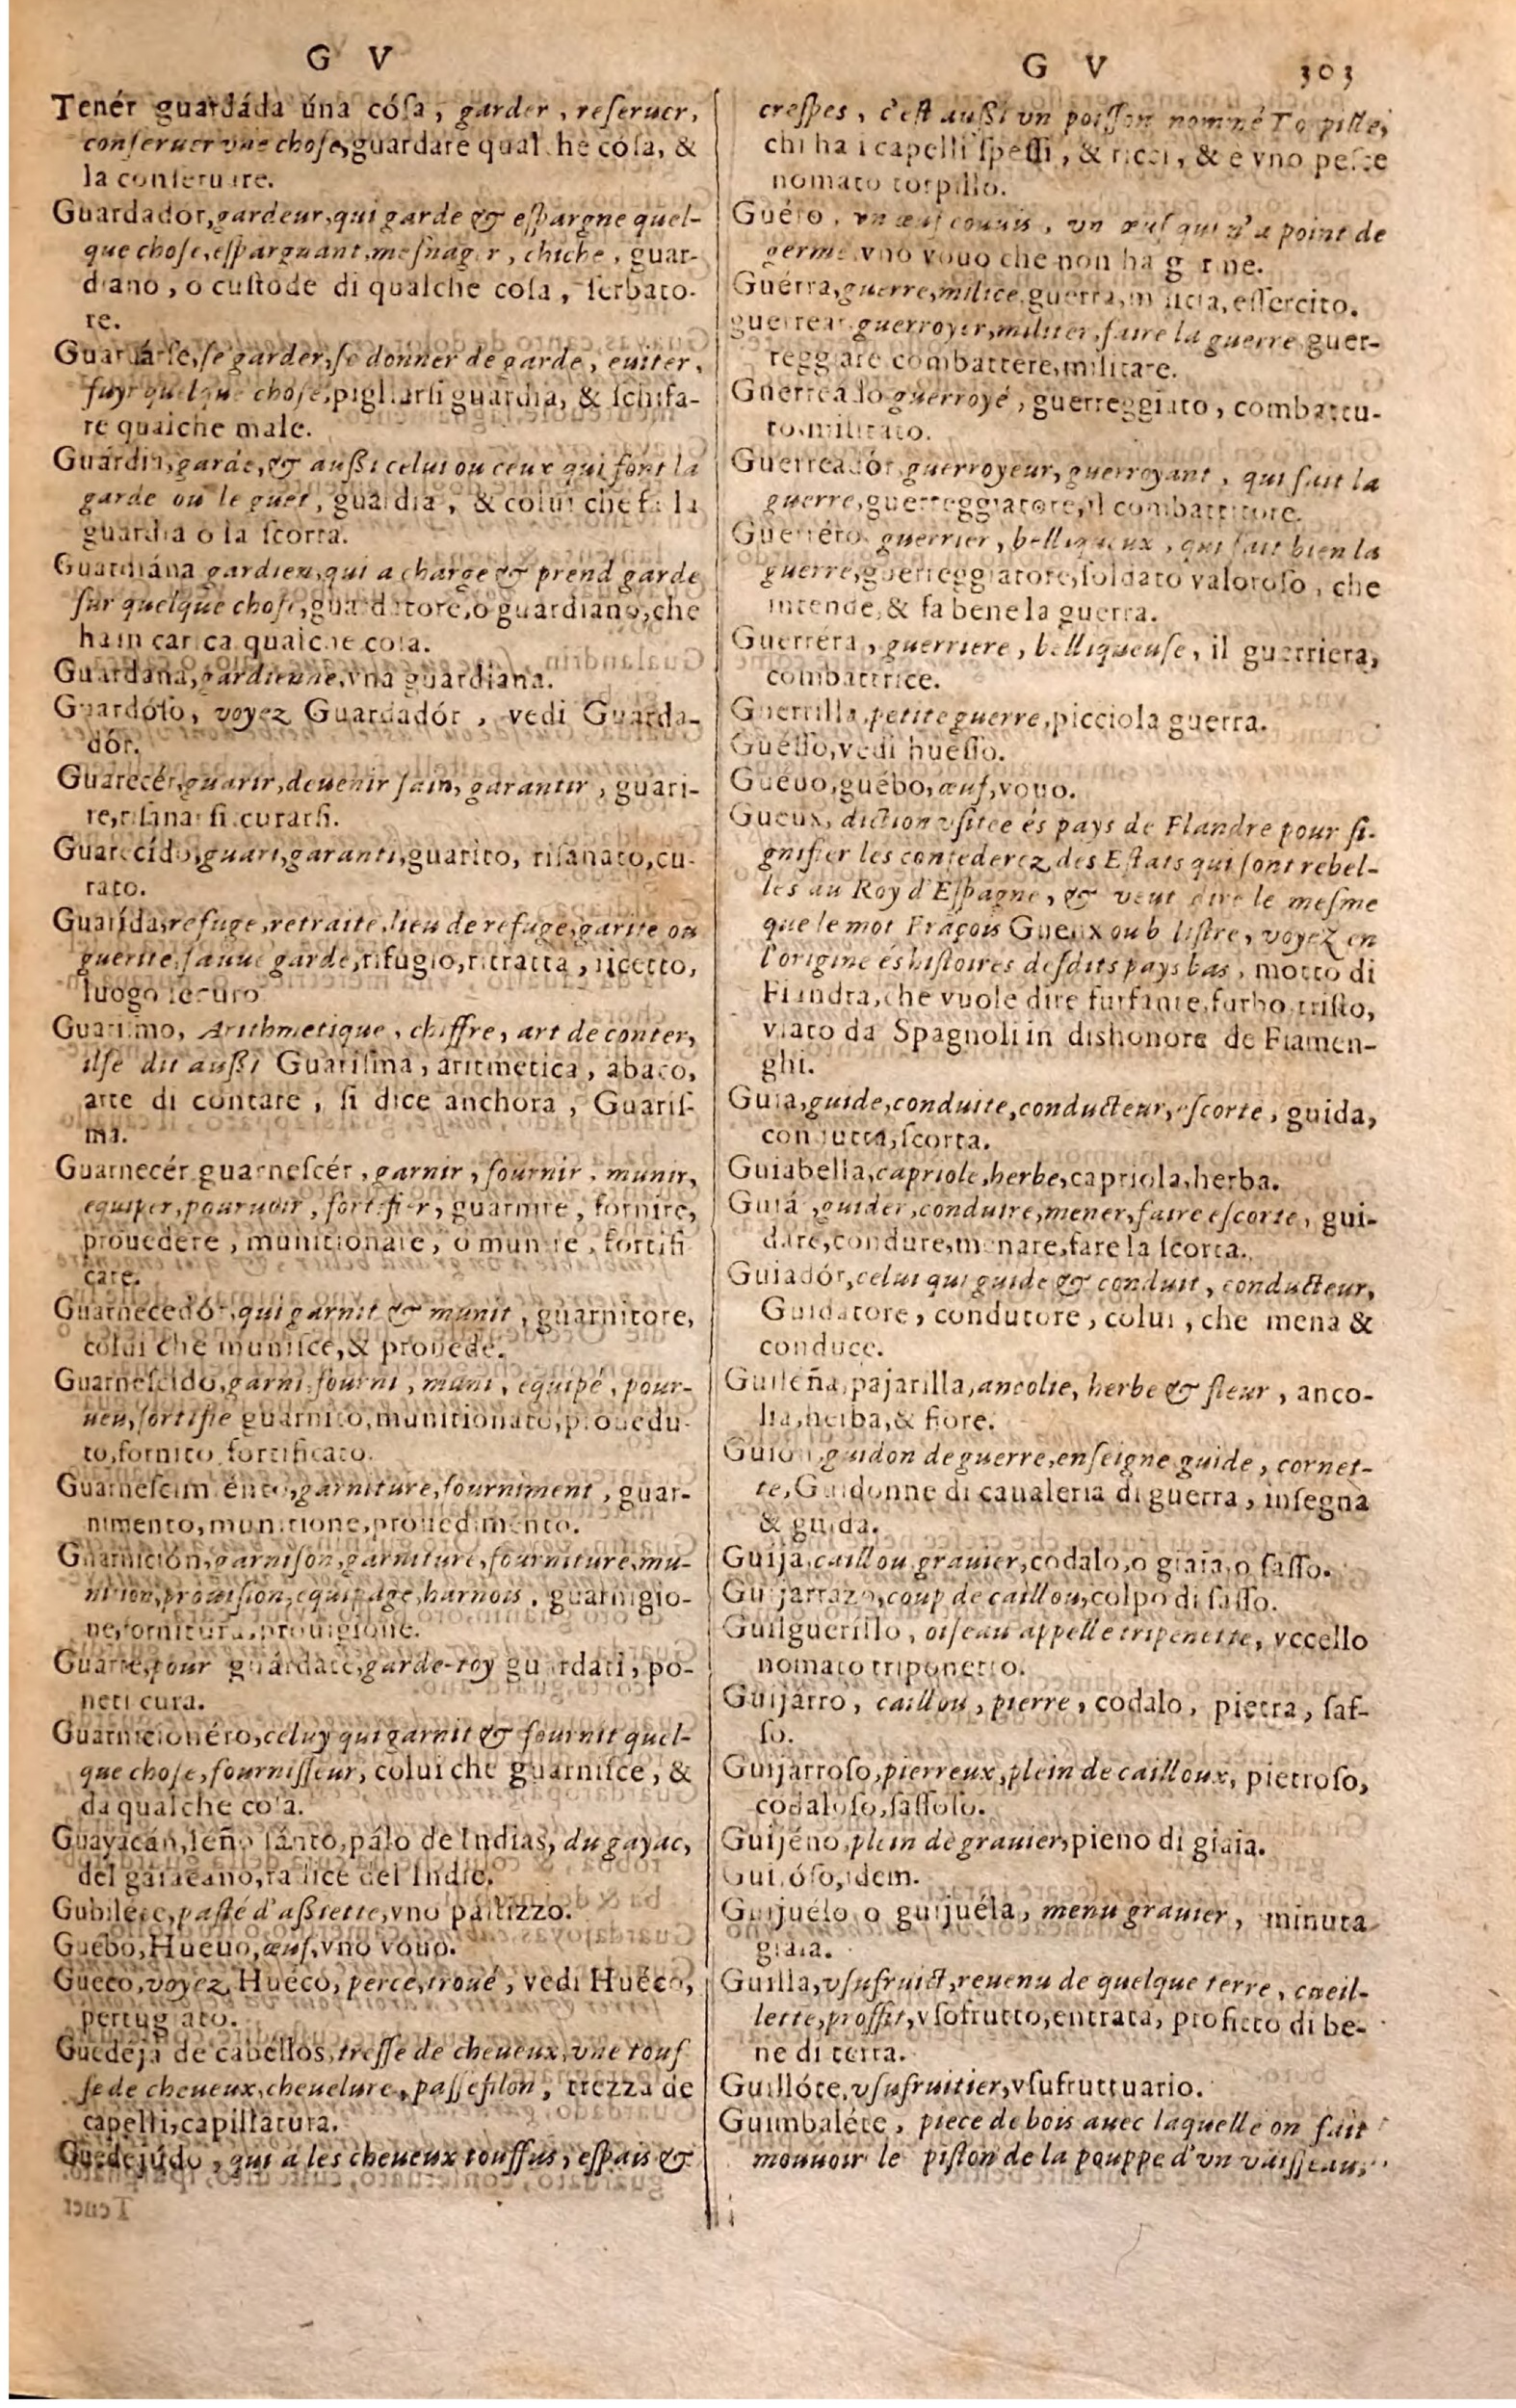 G V
Tenér guardáda úna cósa, garder, reseruer,
conseruer vne chose, guardare qual he cósa, &
la conseruare.
Guardadór, gardeur, qui garde & espargne quel-
que chose, espargnant, mesnager, chiche, guar-
diano, o custode di qualche cosa, serbato-
re.
Guardárse, se garder, se donner de garde, euiter,
fuyr quelque chose, pigliarsi guardia, & schifa-
re qualche male.
Guárdia, garde, & aussi celui ou ceux qui font la
garde ou le guet, guardia, & colui che fa la
guardia o la scorta.
Guardiána gardien, qui a charge & prend garde
sur quelque chose, guardatore, o guardiano, che
ha in carica qualche cosa.
Guardana, gardienne, vna guardiana.
Guardóso, voyez Guardadór, vedi Guarda-
dór.
Guarecér, guarir, deuenir sain, garantir, guari-
re, risanarsi, curarsi.
Guarecído, guari, garanti, guarito, risanato, cu-
rato.
Guarída, refuge, retraite, lieu de refuge, garite ou
guerite, sauue garde, rifugio, ritratta, ricetto,
luogo securo
Guarismo, Arithmetique, chiffre, art de conter,
il se dit aussi Guarisma, aritmetica, abaco,
arte di contare, si dice anchora, Guaris-
ma.
Guarnecér guarnescér, garnir, fournir, munir,
equiper, pouruoir, fortifier, guarnire, fornire,
prouedere, munitionare, o munire, fortifi
care.
Guarnecedór, qui garnit & munit, guarnitore,
colui che munisce, & prouede.
Guarnescido, garni, fourni, muni, equipé, pour-
ueu, fortifie guarnito, munitionato, prouedu-
to, fornito fortificato.
Guarnescimiénto, garniture, fourniment, guar-
nimento, munitione, prouedimento.
Guarnición, garnison, garniture, fourniture, mu-
nition, prouision, equipage, harnois, guarnigio-
ne, fornitura, prouigione.
Guarte, pour guárdate, garde-toy guardati, po-
neti cura.
Guarnicionéro, celuy qui garnit & fournit quel-
que chose, fournisseur, colui che guarnisce, &
da qualche cosa.
Guayacán, leño sánto, pálo de Indias, du gayac,
del gaiacano, radice del Indie.
Gubiléte, pasté d'assiette, vno pastizzo.
Guebo, Hueuo, œuf, vno vouo.
Gueco, voyez Huéco, perce, troué, vedi Huéco,
pertugiato.
Guedeja de cabellos, tresse de cheueux, vne touf
fe de cheueux, cheuelure, passefilon, trezza de
capelli, capillatura.
Guedejúdo, qui a les cheueux touffus, espais &
G V 303
crespes, c'est aussi vn poisson nommé Torpille,
chi ha i capelli spessi, & ricci, & e vno pesce
nomato torpillo.
Guéro, vn œuf couuis, vn œuf qui n'a point de
germe, vno vouo che non ha germe.
Guérra, guerre, milice, guerra, militia, essercito.
guerrear guerroyer, militer, faire la guerre guer-
reggiare combattere, militare.
Guerreádo guerroyé, guerreggiato, combattu-
to, militato.
Guerreadór guerroyeur, guerroyant, qui fait la
guerre, guerreggiatore, il combattitore.
Guerréro guerrier, belliqueux, qui fait bien la
guerre, guerreggiatore, soldato valoroso, che
intende, & fa bene la guerra.
Guerréra, guerriere, belliqueuse, il guerriera,
combattrice.
Guerrilla, petite guerre, picciola guerra.
Guésso, vedi huesso.
Guéuo, guébo, œuf, vouo.
Gueux, diction vsitee és pays de Flandre pour si-
gnifier les confederez des Estats qui sont rebel-
les au Roy d'Espagne, & veut dire le mesme
que le mot Fraçois Gueux ou b listre, voyez en
l'origine és histoires desdits pays bas, motto di
Fiandra, che vuole dire furfante, furbo, tristo,
vsato da Spagnoli in dishonore de Fiamen-
ghi.
Guia, guide, conduite, conducteur, escorte, guida,
condutta, scorta.
Guiabella, capriole, herbe, capriola, herba.
Guiá, guider, conduire, mener, faire escorte, gui-
dare, condure, menare, fare la scorta.
Guiadór, celui qui guide & conduit, conducteur,
Guidatore, condutore, colui, che mena &
conduce.
Guileña, pajarilla, ancolie, herbe & fleur, anco-
lia, herba, & fiore.
Guion, guidon de guerre, enseigne guide, cornet-
te, Guidonne di caualeria di guerra, insegna
& guida.
Guija, caillou, grauier, codalo, o giaia, o sasso.
Guijarrazo, coup de caillou, colpo di sasso.
Guilguerillo, oiseau appelle tripenette, vccello
nomato triponetto.
Guijárro, caillou, pierre, codalo, pietra, sas-
so.
Guijarroso, pierreux, plein de cailloux, pietroso,
codaloso, sassoso.
Guijéno, plein de grauier, pieno di giaia.
Guijóso, idem.
Guijuélo o guijuéla, menu grauier, minuta
giaia.
Guilla, vsufruict, reuenu de quelque terre, cueil-
lette, proffit, vsofrutto, entrata, profitto di be-
ne di terra.
Guillóte, vsufruitier, vsufruttuario.
Guimbaléte, piece de bois auec laquelle on fait
mouuoir le piston de la pouppe d'vn vaisseau,